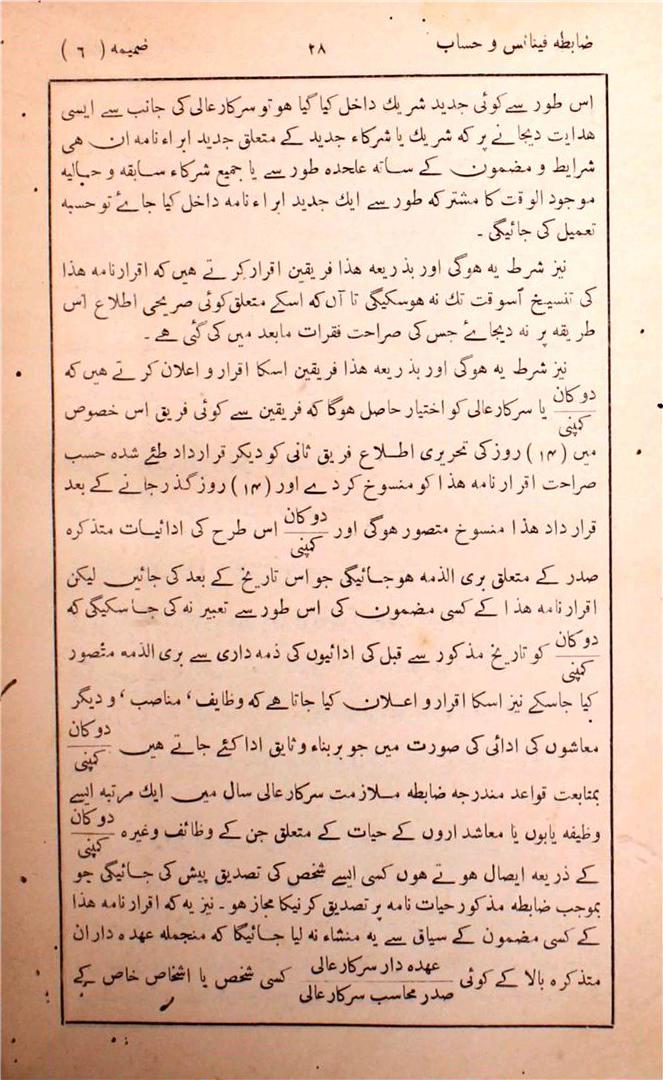 ضابطہ فینانس و حساب ۲۸ ضمیمہ ( ۶ )
اس طور سے کوئی جدید شریك داخل کیا گیا ہو تو سرکارعالی کی جانب سے ایسی
ھدایت دیجانے پر کہ شریك یا شرکاء جدید کے متعلق جدید ابراء نامہ ان ھی
شرایط و مضمون کے ساتھ علحدہ طور سے یا جمیع شرکاء سابقہ و حالیہ
موجود الوقت کا مشترکہ طور سے ایك جدید ابراء نامہ داخل کیا جاۓ تو حسبہ
تعمیل کی جائیگی ۔
نیز شرط یہ ہوگی اور بذریعہ ھذا فریقین اقرار کرتے ھیں کہ اقرار نامہ ھذا
کی تنسیخ اُسوقت تك نہ ہوسکیگی تا آں کہ اسکے متعلق کوئی صریحی اطلاع اُس
طریقہ پر نہ دیجاۓ جس کی صراحت فقرات مابعد میں کی گئی ھے ۔
نیز شرط یہ ہوگی اور بذریعہ ھذا فریقین اسکا اقرار و اعلان کرتے ھیں کہ
دوکان
کمپنی یا سرکارعالی کو اختیار حاصل ہوگا کہ فریقین سے کوئی فریق اس خصوص
میں (۱۴) روز کی تحریری اطلاع فریق ثانی کو دیکر قرارداد طئے شدہ حسب
صراحت اقرار نامہ ھذا کو منسوخ کردے اور (۱۴) روز گذر جانے کے بعد
قرار داد ھذا منسوخ متصور ہوگی اور دوکان
کمپنی اس طرح کی ادائیات متذکرہ
صدر کے متعلق بری الذمہ ہوجائیگی جو اس تاریخ کے بعد کی جائیں لیکن
اقرار نامہ ھذا کے کسی مضمون کی اس طور سے تعبیر نہ کی جا سکیگی کہ
دوکان
کمپنی کو تاریخ مذکور سے قبل کی ادائیوں کی ذمہ داری سے بری الذمہ متصور
کیا جاسکے نیز اسکا اقرار و اعلان کیا جاتا ھے کہ وظایف ، مناصب ، و دیگر
معاشوں کی ادائی کی صورت میں جو بربناء وثایق ادا کئے جاتے ھیں دوکان
کمپنی
بمتابعت قواعد مندرجہ ضابطہ ملازمت سرکارعالی سال میں ایك مرتبہ ایسے
وظیفہ یابوں یا معاشداروں کے حیات کے متعلق جن کے وظائف وغیرہ دوکان
کمپنی
کے ذریعہ ایصال ہوتے ہوں کسی ایسے شخص کی تصدیق پیش کی جائیگی جو
بموجب ضابطہ مذکور حیات نامہ پر تصدیق کرنیکا مجاز ہو ۔ نیز یہ کہ اقرار نامہ ھذا
کے کسی مضمون کے سیاق سے یہ منشاء نہ لیا جائیگا کہ منجملہ عہدہ داران
متذکرہ بالا کے کوئی عہدہ دار سرکارعالی
صدر محاسب سرکارعالی کسی شخص یا اشخاص خاص کے